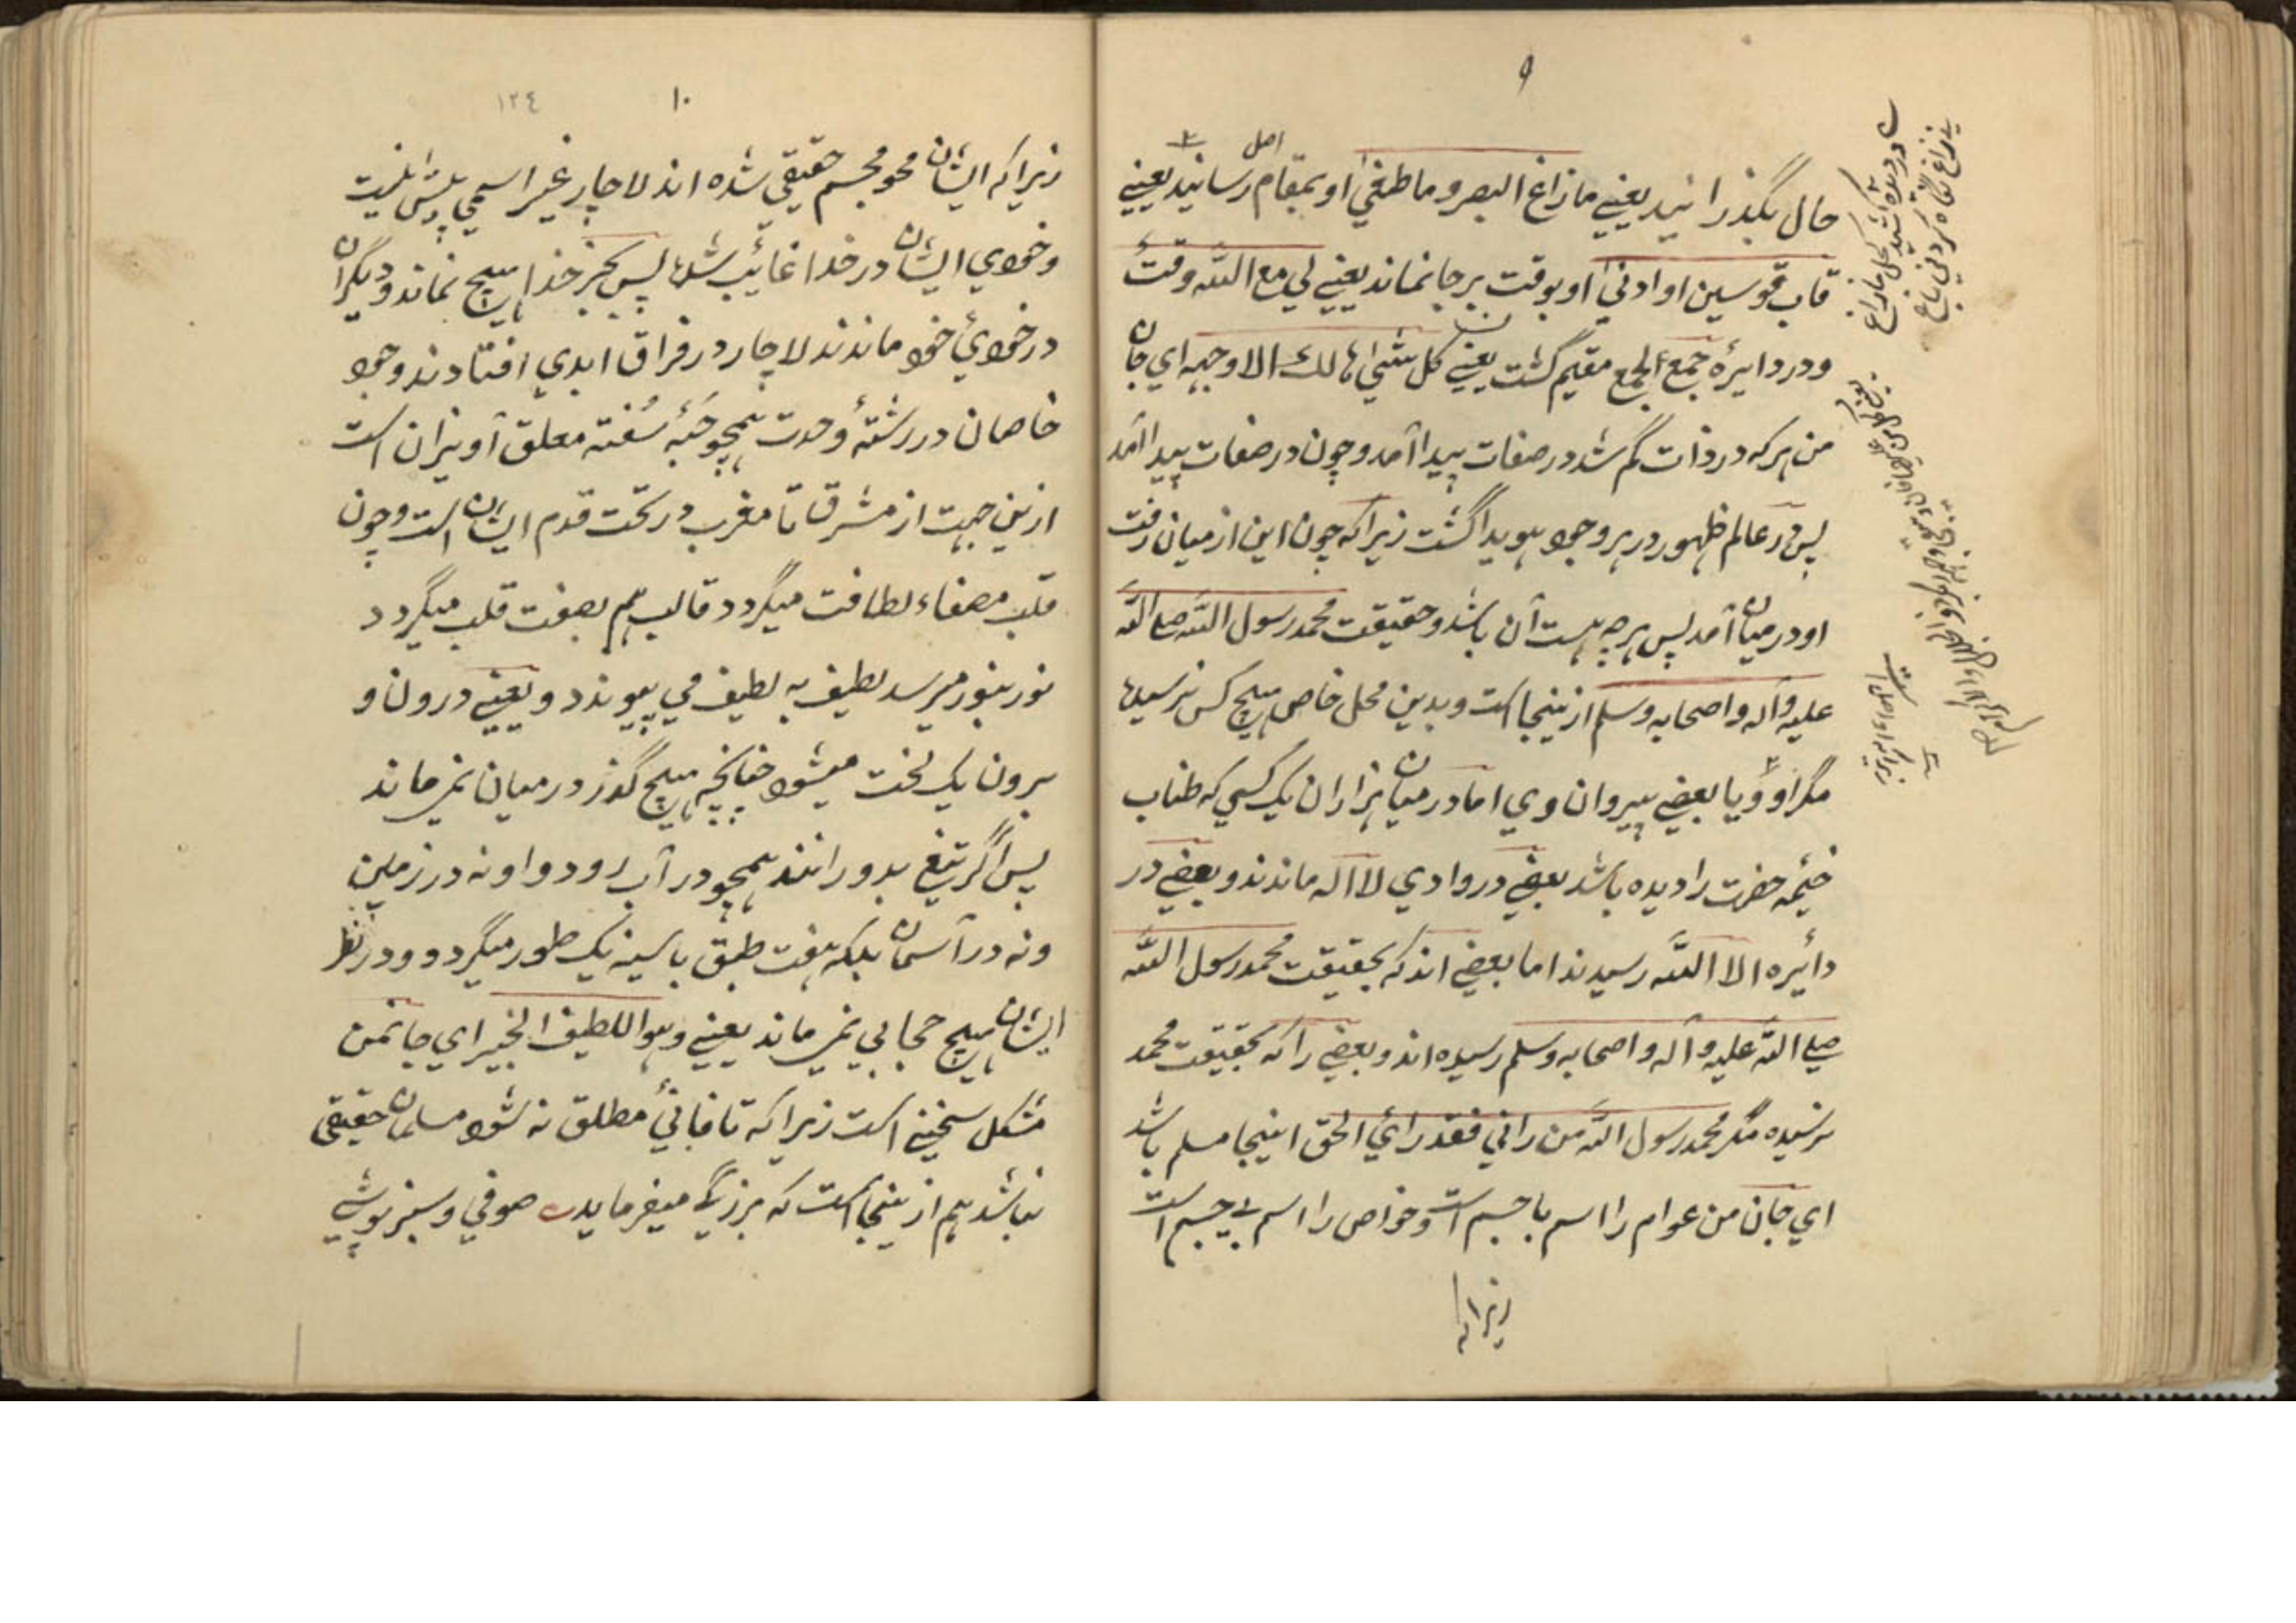 ۹
حال بگذرانید یعنے مازاغ البصر و ما طغیٰ او بمقام اصل رسانید یعنے
قاب قوسین او ادنیٰ او بوقت برجا نماند یعنے لي مع اللّه وقتٌ
و در دایرهٔ جمع الجمع مقیم گشت یعنے کل شئ هالك الا وجهه اي جان
من هر که در ذات گم شد در صفات پیدا آمد و چون در صفات پیدا آمد
پس در عالم ظهور در هر وجود هویدا گشت زیرا که چون این از میان رفت
او درمیان آمد پس هر چه هست آن باشد و حقیقت محمد رسول اللّه صلے اللّه
علیه و آله و اصحابه وسلم ازینجا است و بدین محل خاص هیچ کس نرسیده
مگر او و یا بعضے پیروان وي اما درمیان هزاران یک کسي که طناب
خیمهٔ حضرت را دیده باشد بعضے در وادي لا اله ماندند و بعضے در
دائره الا اللّه رسیدند اما بعضے اند که بحقیقت محمد رسول اللّه
صلے اللّه علیه و آله و اصحابه وسلم رسیده اند و بعضے را که بحقیقت محمد
نرسیده مگر محمد رسول اللّه من راني فقد راي الحق اینجا مسلم باشد
اي جان من عوام را اسم با جسم است و خواص را اسم بے جسم است
زیرا که
۱۰
١٢٤
زیرا که ایشان محو مجسم حقیقي شده اند لاچار غیر اسمي پیش نیست
و خودي ایشان در خدا غائب شده پس بجز خدا هیچ نماند و دیگران
در خودئ خود ماندند لاچار در فراق ابدي افتادند وجود
خاصان در رشتهٔ وحدت همچو حَبّهٔ سُفته معلق آویزان است
ازین جهت از مشرق تا مغرب در تحت قدم ایشان است و چون
قلب مصفاء لطافت میگردد قالب هم بصفت قلب میگردد
نور بنور میرسد لطیف به لطیف مي پیوندد و یعنے درون و
برون یک لخت میشود چنانچه هیچ گذر درمیان نمے ماند
پس اگر تیغ بدو رانند همچو در آب رود و او نه در زمین
و نه در آسمان بلکه هفت طبق با سینه یک طور میگردد و در نظر
ایشان هیچ حجابي نمے ماند یعنے وهو اللطیف الخبیر اي جانمن
مشکل سخنے است زیرا که تا فانئ مطلق نه شود مسلمان حقیقي
نباشد هم ازینجا است که بزرگے میفرماید صوفي و سبز پوشے